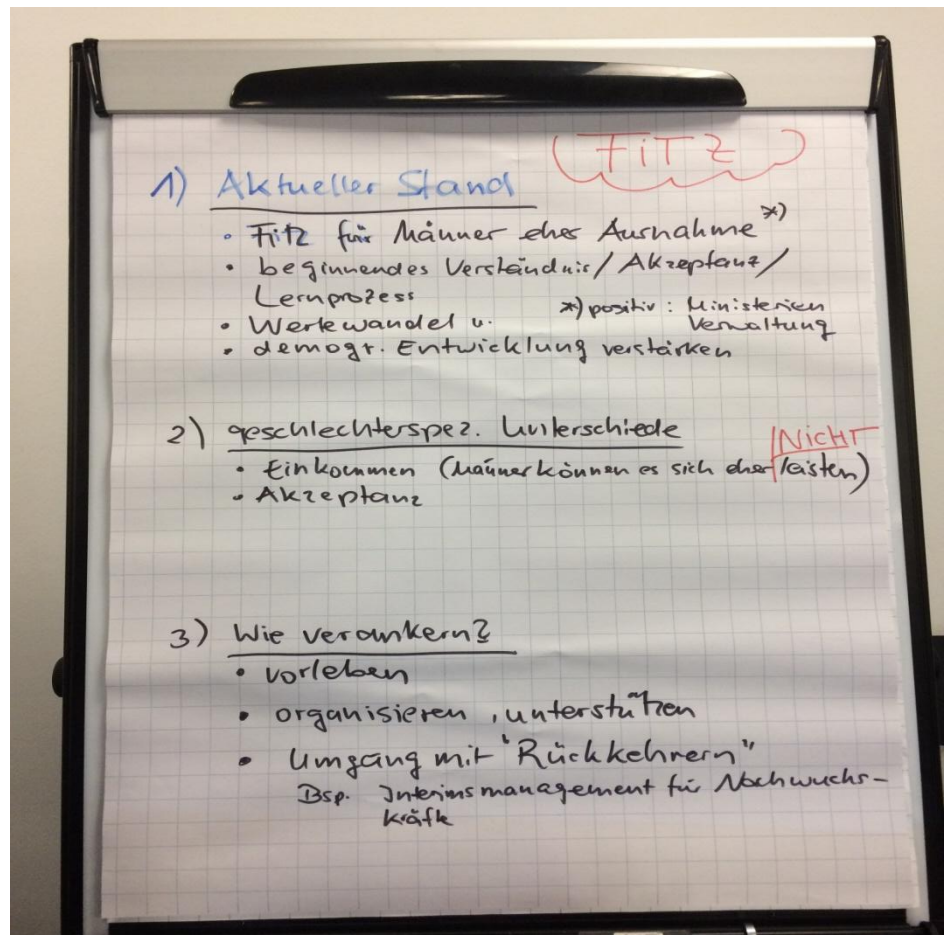 FiTZ
1) Aktueller Stand
• Fitz für Männer eher Ausnahme *)
• beginnendes Verständnis / Akzeptanz /
Lernprozess
*) positiv : Ministerien
Verwaltung
• Wertewandel u.
• demogr. Entwicklung verstärken
2) geschlechterspez. Unterschiede
NICHT
• Einkommen (Männer können es sich eher leisten)
• Akzeptanz
3) Wie verankern?
• vorleben
• organisieren, unterstützen
• Umgang mit "Rückkehrern"
Bsp. Interimsmanagement für Nachwuchs-
kräfte